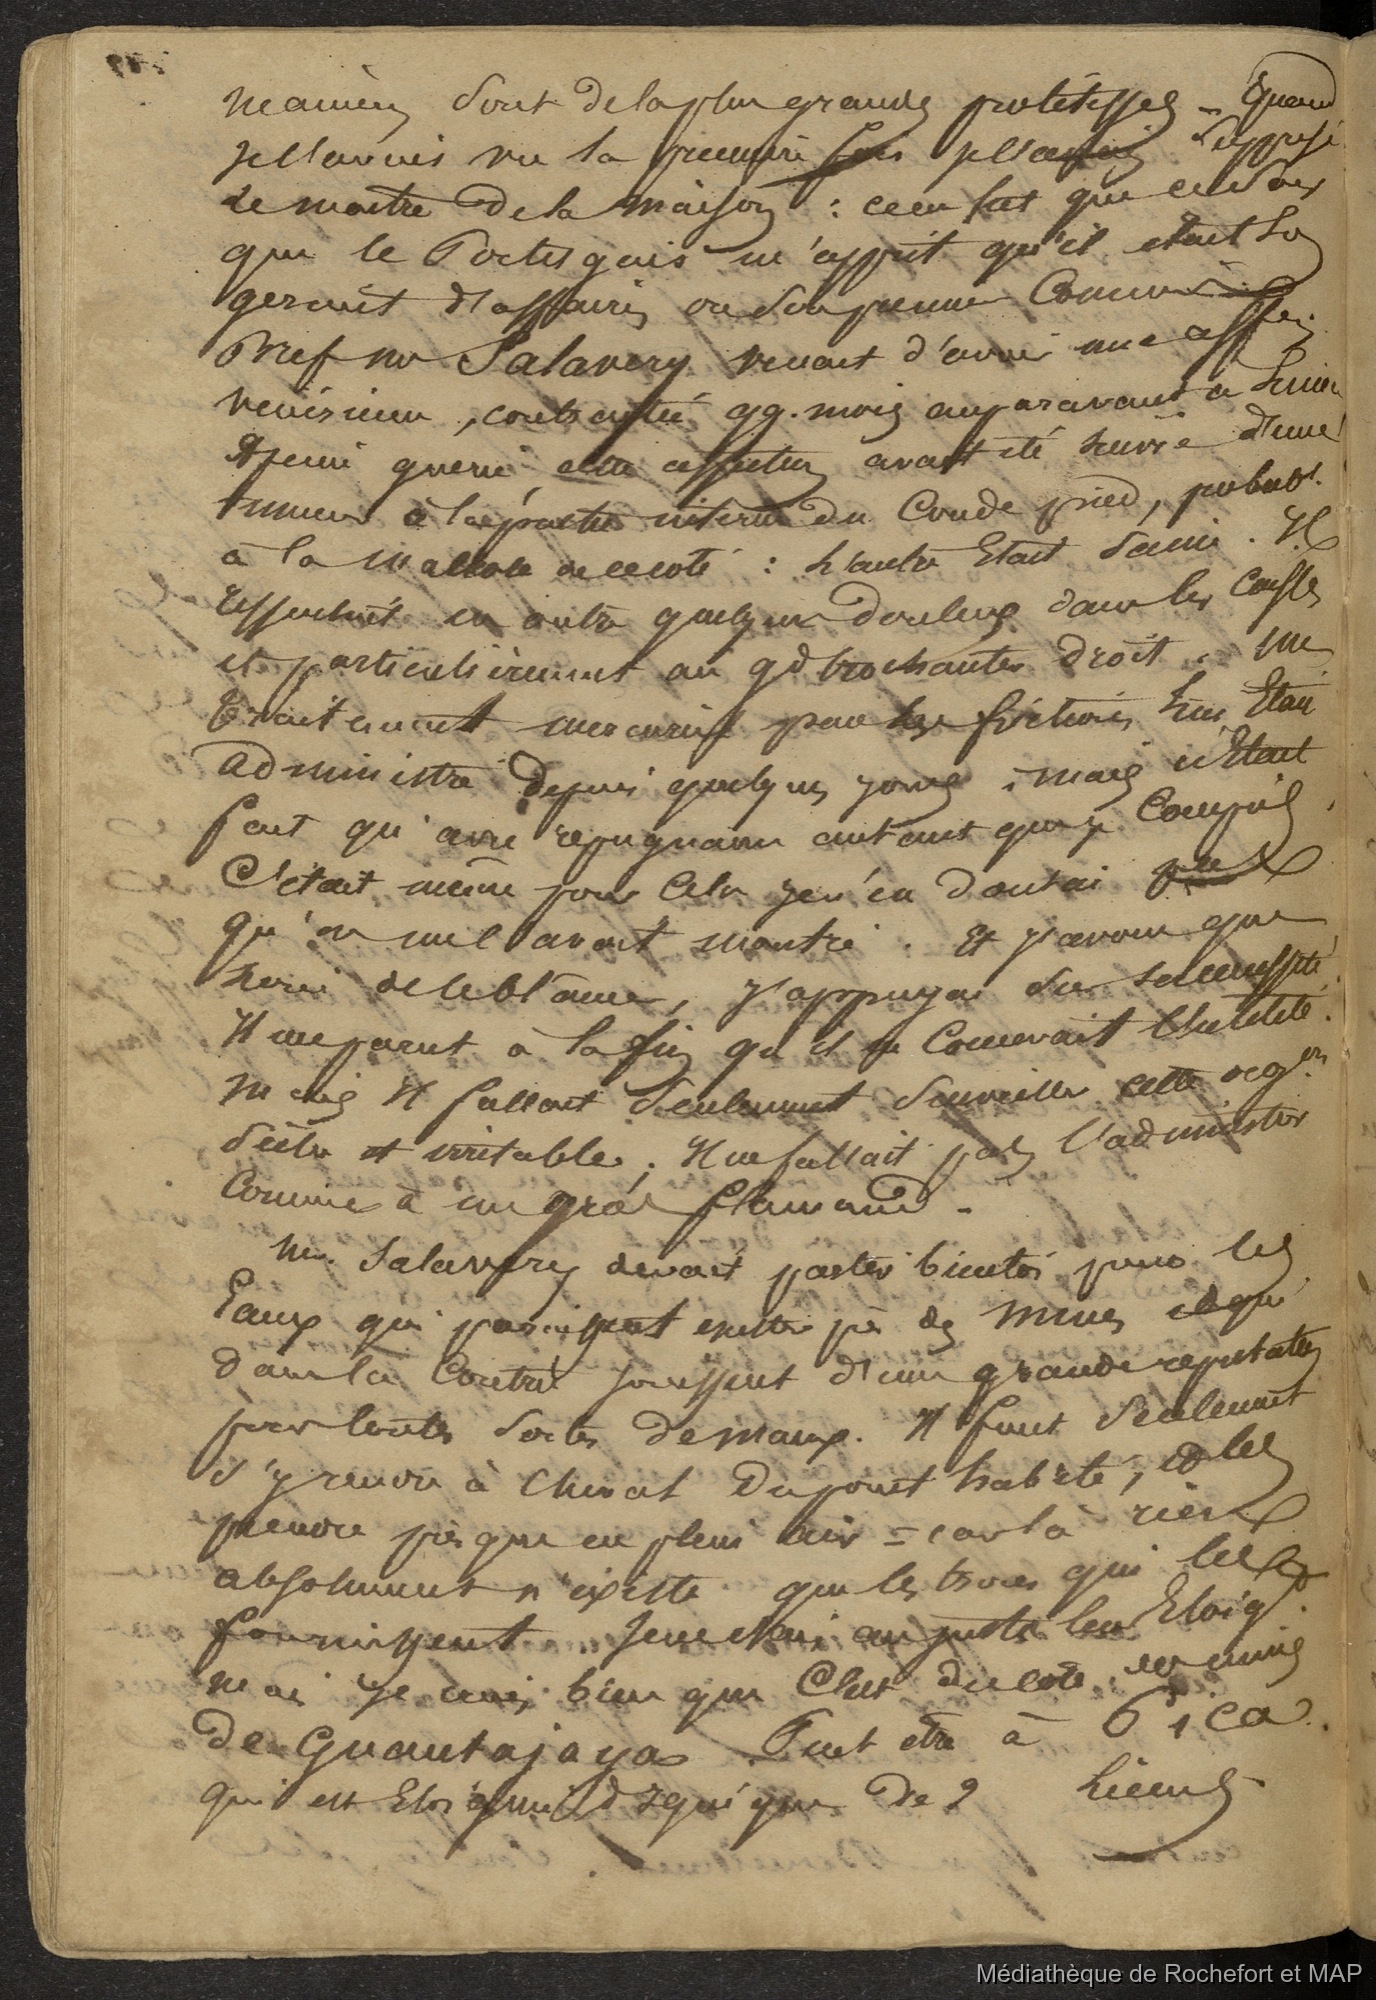 manières sont de la plus grande politesse – Quand
je l'avais vu la première fois je l'avais supposé
le maître de la maison : ce ne fut que ce soir
que le Portugais m'apprit qu'il était son
gérant d'affaires ou son premier Commis
Bref mr Salavery venait d'avoir une affon
vénérienne, contractée qq. mois auparavant à Lima
A peine guérie, cette affection avait été suivie d'une
tumeur à la partie interne du Coude pied, probabt.
à la malléole de ce côté : L'autre Etait saine. Il
ressentait en outre quelques douleurs dans les cuisses
et particulièrement au gd trochanter droit. un
Traitement mercuriel par les frictions lui Etait
administré depuis quelques jours, mais n'Etait
fait qu'avec répugnance autant que je Compris,
C'était même pour cela je n'en doutai pas
qu'on me l'avait montré. Et j'avoue que
loin de le blâmer, j'appuyai sur sa nécessité.
Il me parut à la fin qu'il en Concevait l'utilité.
mais Il fallait seulement surveiller cette orgon
sèche et irritable. Il ne fallait pas l'administrer
Comme à un gros flamand.
mr. Salavery devait partir bientôt pour les
Eaux qui paraissent exister près des mines et qui
dans la Contrée jouissent d'une grande réputation
pour toutes sortes de maux. Il faut seulement
s'y rendre à cheval du point habité, et les
prendre presque en plein air = car là rien
absolument n'existe que les trous qui les
fournissent. Je ne sais au juste leur Eloigt.
mais je crois bien que C'est du côté des mines
de Guantajaya. Peut être à Pica.
qui est Eloigné d'Iquique de 2 lieues
Médiathèque de Rochefort et MAP